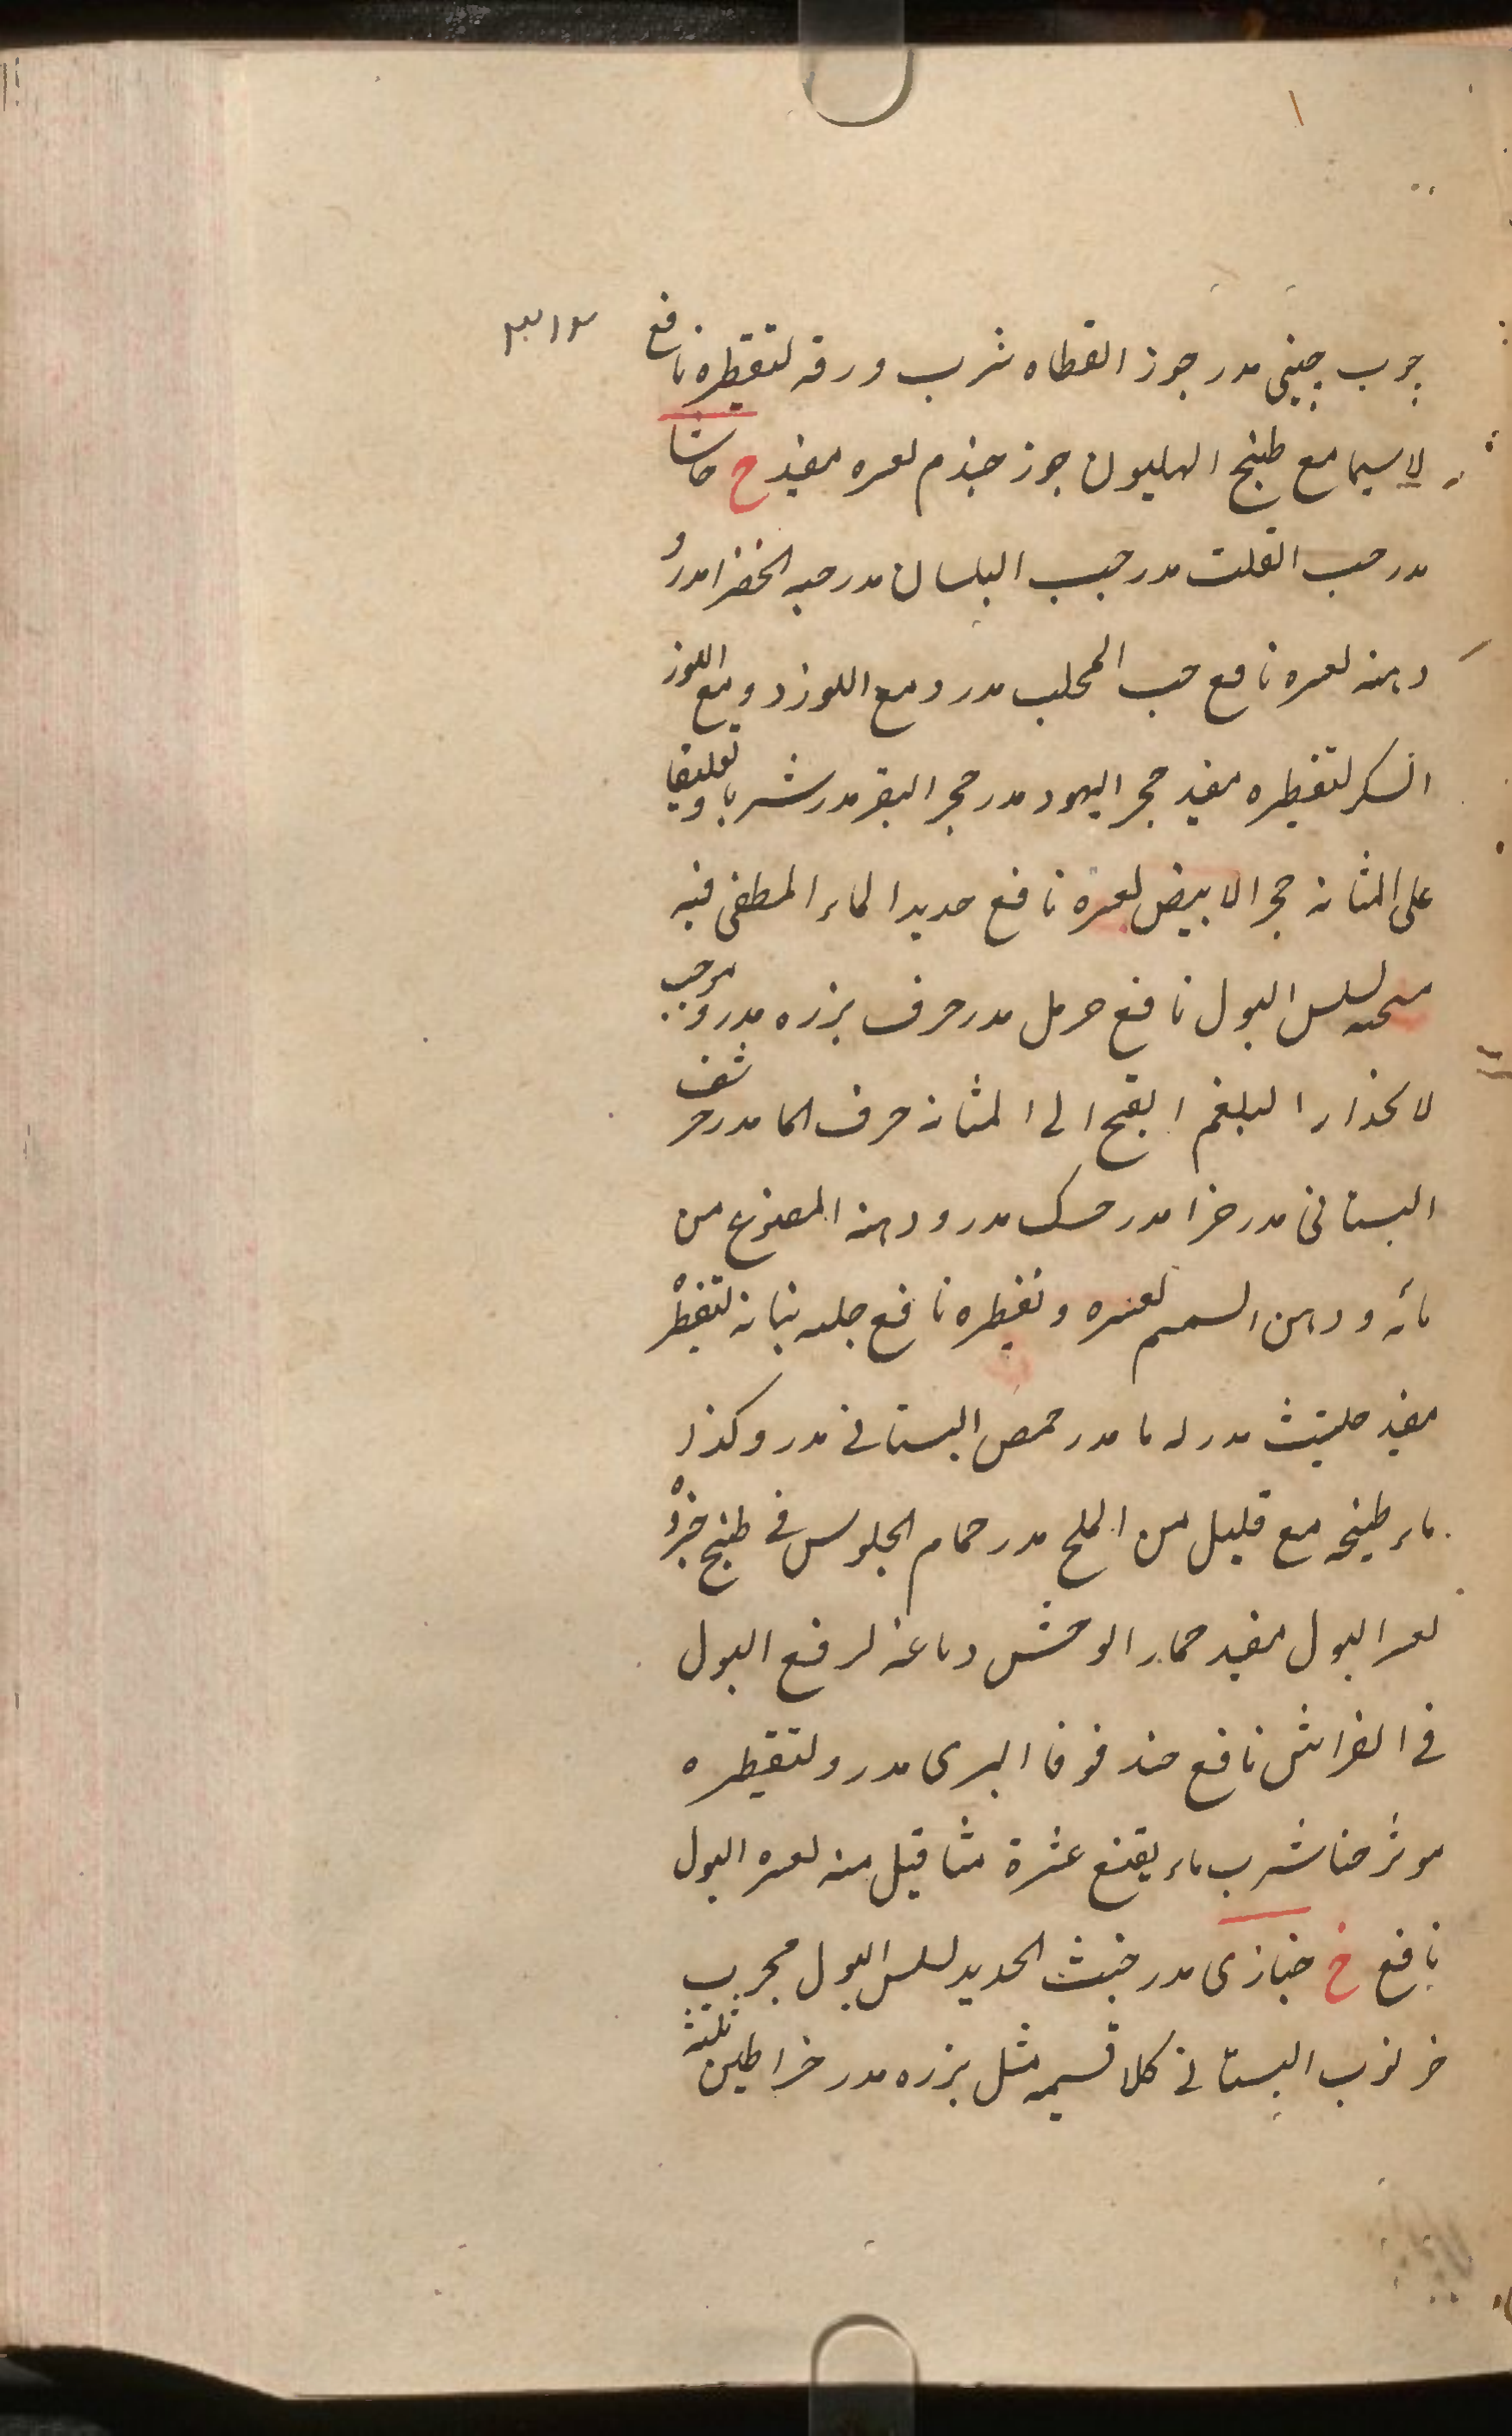 جوب چینی مدر جوز القطاه شرب ورقه لتقطیره نافع
لاسیما مع طبیخ الهلیون جوز جندم لعسره مفید ح حاشا
مدر حب القلت مدر حب البلسان مدر حبه الخضرا مدر و
دهنه لعسره نافع حب المحلب مدر ومع اللوز و ومع اللوز
السکر لتقطیره مفید حجر الیهود مدر حجر البقر مدر شربا و تعلیقا
علی المثانه حجر الابیض لعسره نافع حدید الماء المطفی فیه
لسلس البول نافع حرمل مدر حرف بزره مدر و موجب
لانحذار البلغم القیح الی المثانه حرف الما مدر حرشف
البستانی مدر حزا مدر حسک مدر ودهنه المصنوع من
مائه ودهن السمسم لعسره وتقطیره نافع حلبه نباته لتقطیره
مفید حلتیث مدر له ما مدر حمص البستانی مدر وکذا
ماء طبیخه مع قلیل من الملح مدر حمام الجلوس فی طبیخ
لعسر البول مفید حمار الوحش دماغه لرفع البول
فی الفراش نافع حندقوقا البری مدر ولتقطیره
موثر حنا شرب ماء نقیع عشرة مثاقیل منه لعسره البول
نافع خ خبازی مدر خبث الحدید لسلس البول مجرب
خرنوب البستانی کلا قسمیه مثل بزره مدر خراطین ثلثة